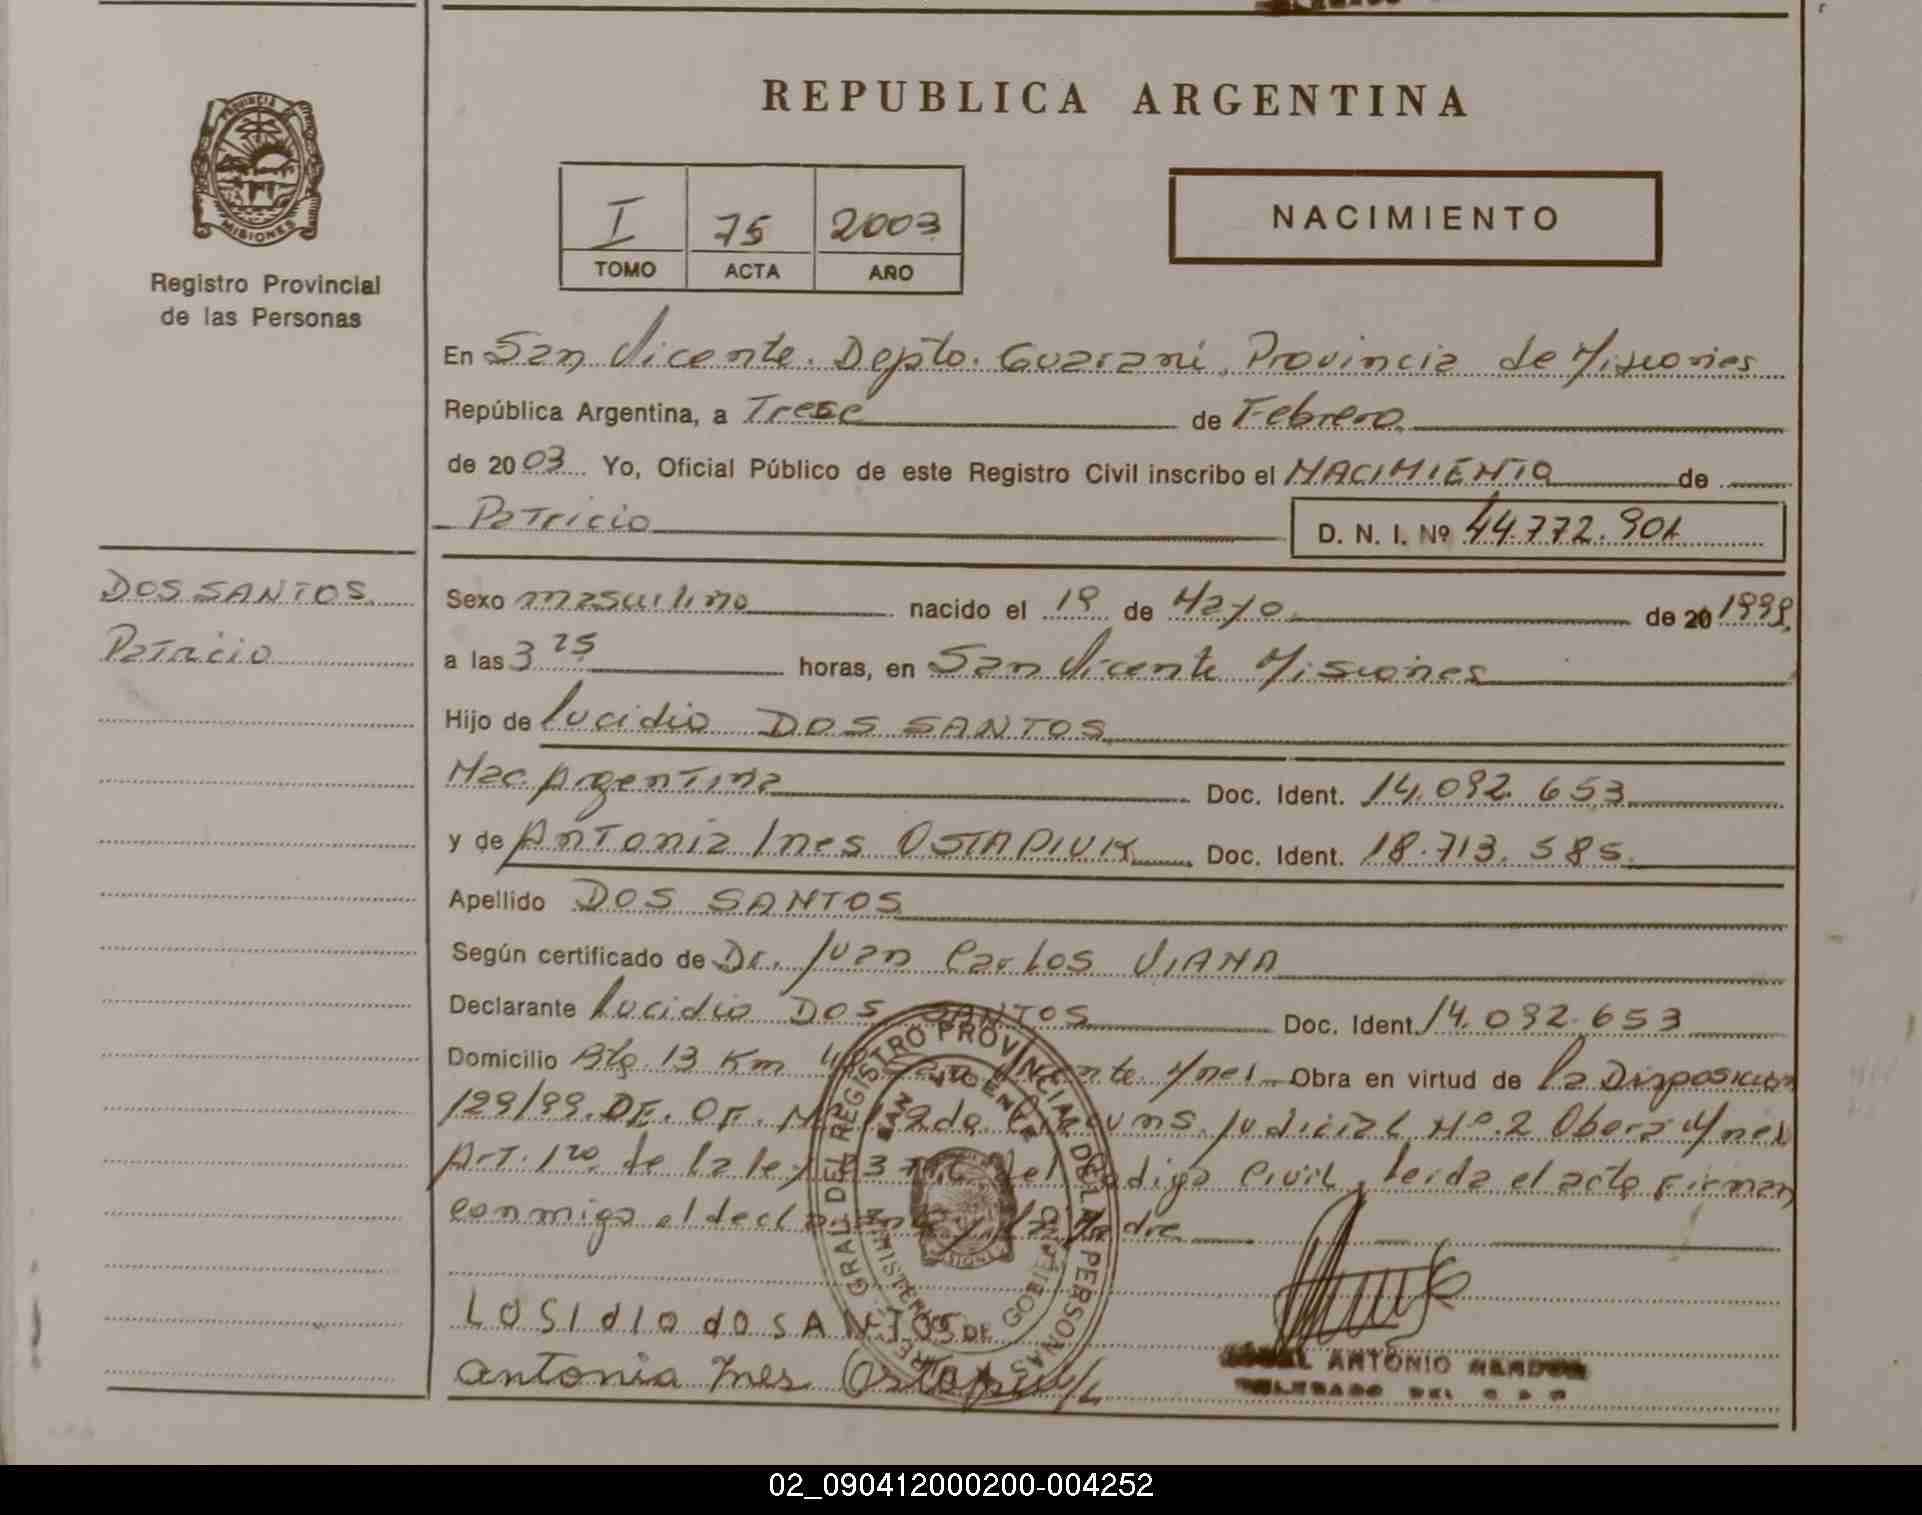 REPUBLICA ARGENTINA
PROVINCIA
MISIONES
Registro Provincial
de las Personas
I 75 2003
TOMO ACTA AÑO
NACIMIENTO
En San Vicente. Depto. Guaraní, Provincia de Misiones
República Argentina, a Trece de Febrero
de 2003 Yo, Oficial Público de este Registro Civil inscribo el NACIMIENTO de
Patricio
D. N. I. Nº 44.772.901
DOS SANTOS
Patricio
Sexo masculino nacido el 19 de Mayo de 20 1999
a las 3 25 horas, en San Vicente Misiones
Hijo de Lucidio DOS SANTOS
Nac. Argentina Doc. Ident. 14.092.653
y de Antonia Ines OSTAPIUK Doc. Ident. 18.713.585
Apellido DOS SANTOS
Según certificado de Dr. Juan Carlos VIANA
Declarante Lucidio DOS SANTOS Doc. Ident. 14.092.653
Domicilio Km Vicente Mnes Obra en virtud de la Disposicion
129/99. DE. OF. Circuns. Judicial Nº 2 Obera Mnes
Art. 1ro de la ley del Codigo Civil, leida el acto Firman
conmigo el declarante y la Madre
REGISTRO PROVINCIAL DE LAS PERSONAS
SAN VICENTE
MINISTERIO DE GOBIERNO
MISIONES
LOSIdIO dO SANTOS
Antonia Ines Ostapiuk
ANTONIO
DELEGADO DEL
02_090412000200-004252